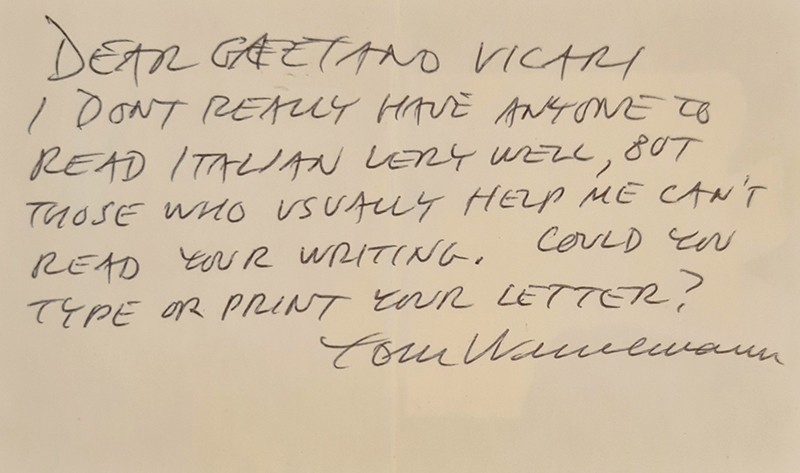 DEAR GAETANO VICARI
I DONT REALLY HAVE ANYONE TO
READ ITALIAN VERY WELL, BUT
THOSE WHO USUALLY HELP ME CAN'T
READ YOUR WRITING. COULD YOU
TYPE OR PRINT YOUR LETTER?
Tom